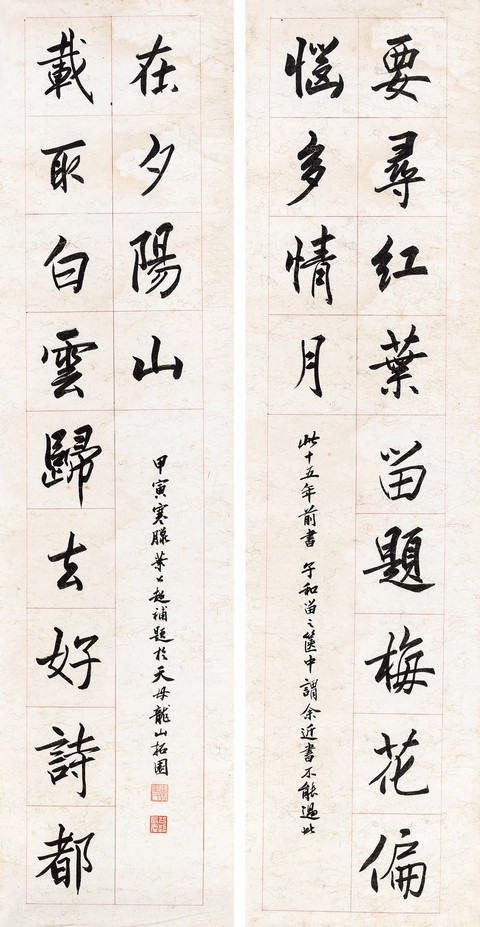 要尋紅葉留題梅花偏
惱多情月
此十五年前書 午和留之篋中謂余近書不能過此
載取白雲歸去好詩都
在夕陽山
甲寅寒臘葉公超補題於天母龍山拓園